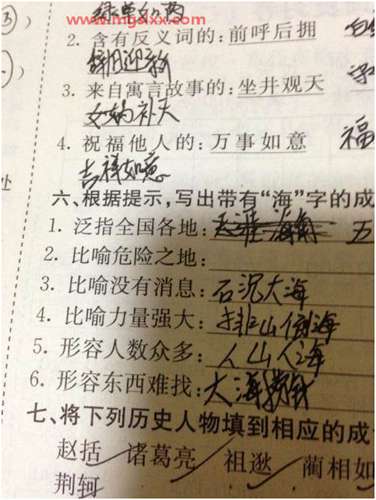 www.lmgslxx.com
2. 含有反义词的:前呼后拥
辞旧迎新
3. 来自寓言故事的:坐井观天
女娲补天
4. 祝福他人的:万事如意 福
吉祥如意
六、根据提示,写出带有“海”字的成
1. 泛指全国各地:天涯海角 五
2. 比喻危险之地:
3. 比喻没有消息:石沉大海
4. 比喻力量强大:排山倒海
5. 形容人数众多:人山人海
6. 形容东西难找:大海捞针
七、将下列历史人物填到相应的成
赵括 诸葛亮 祖逖 蔺相如
荆轲